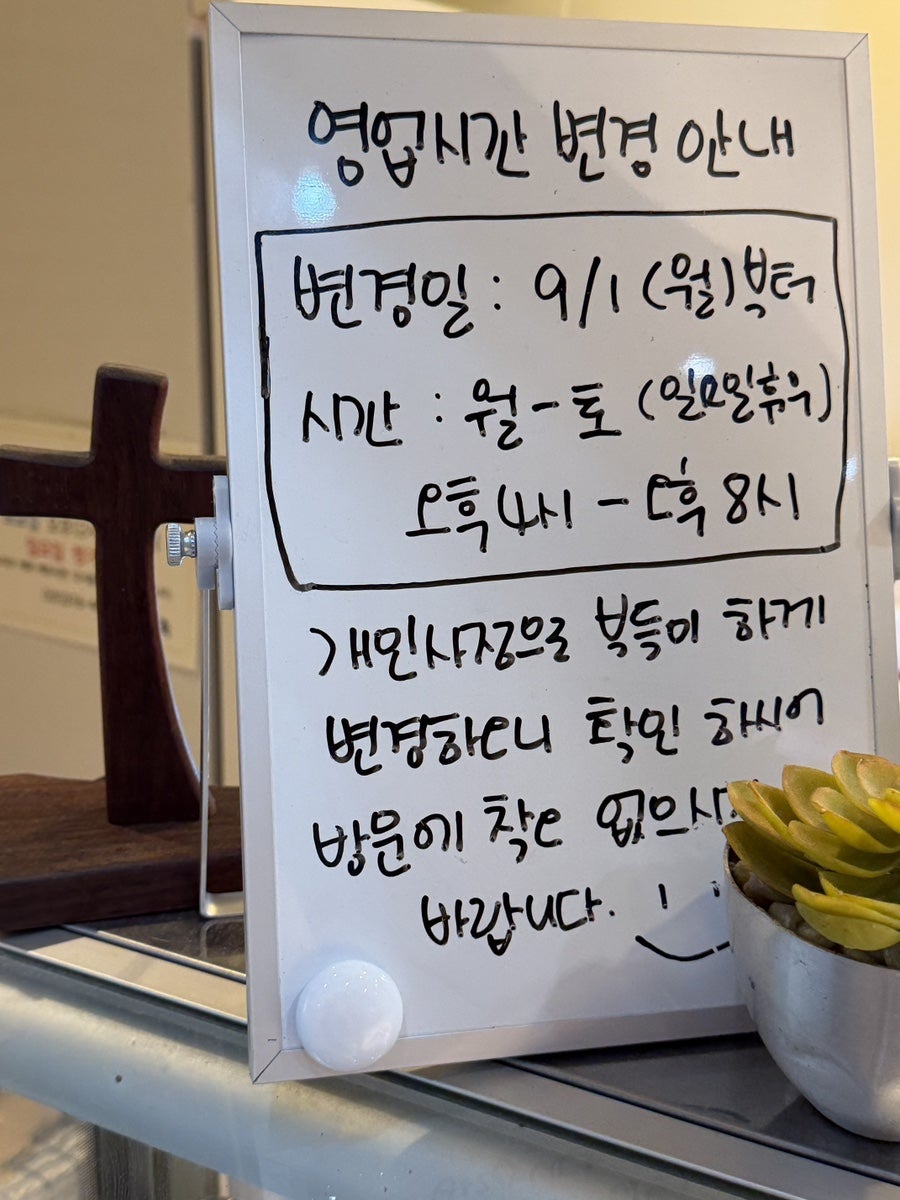 영업시간 변경 안내
변경일 : 9/1 (월)부터
시간 : 월-토 (일요일휴무)
오후 4시 - 오후 8시
개인사정으로 부득이 하게
변경하오니 확인 하시어
방문에 착오 없으시
바랍니다.